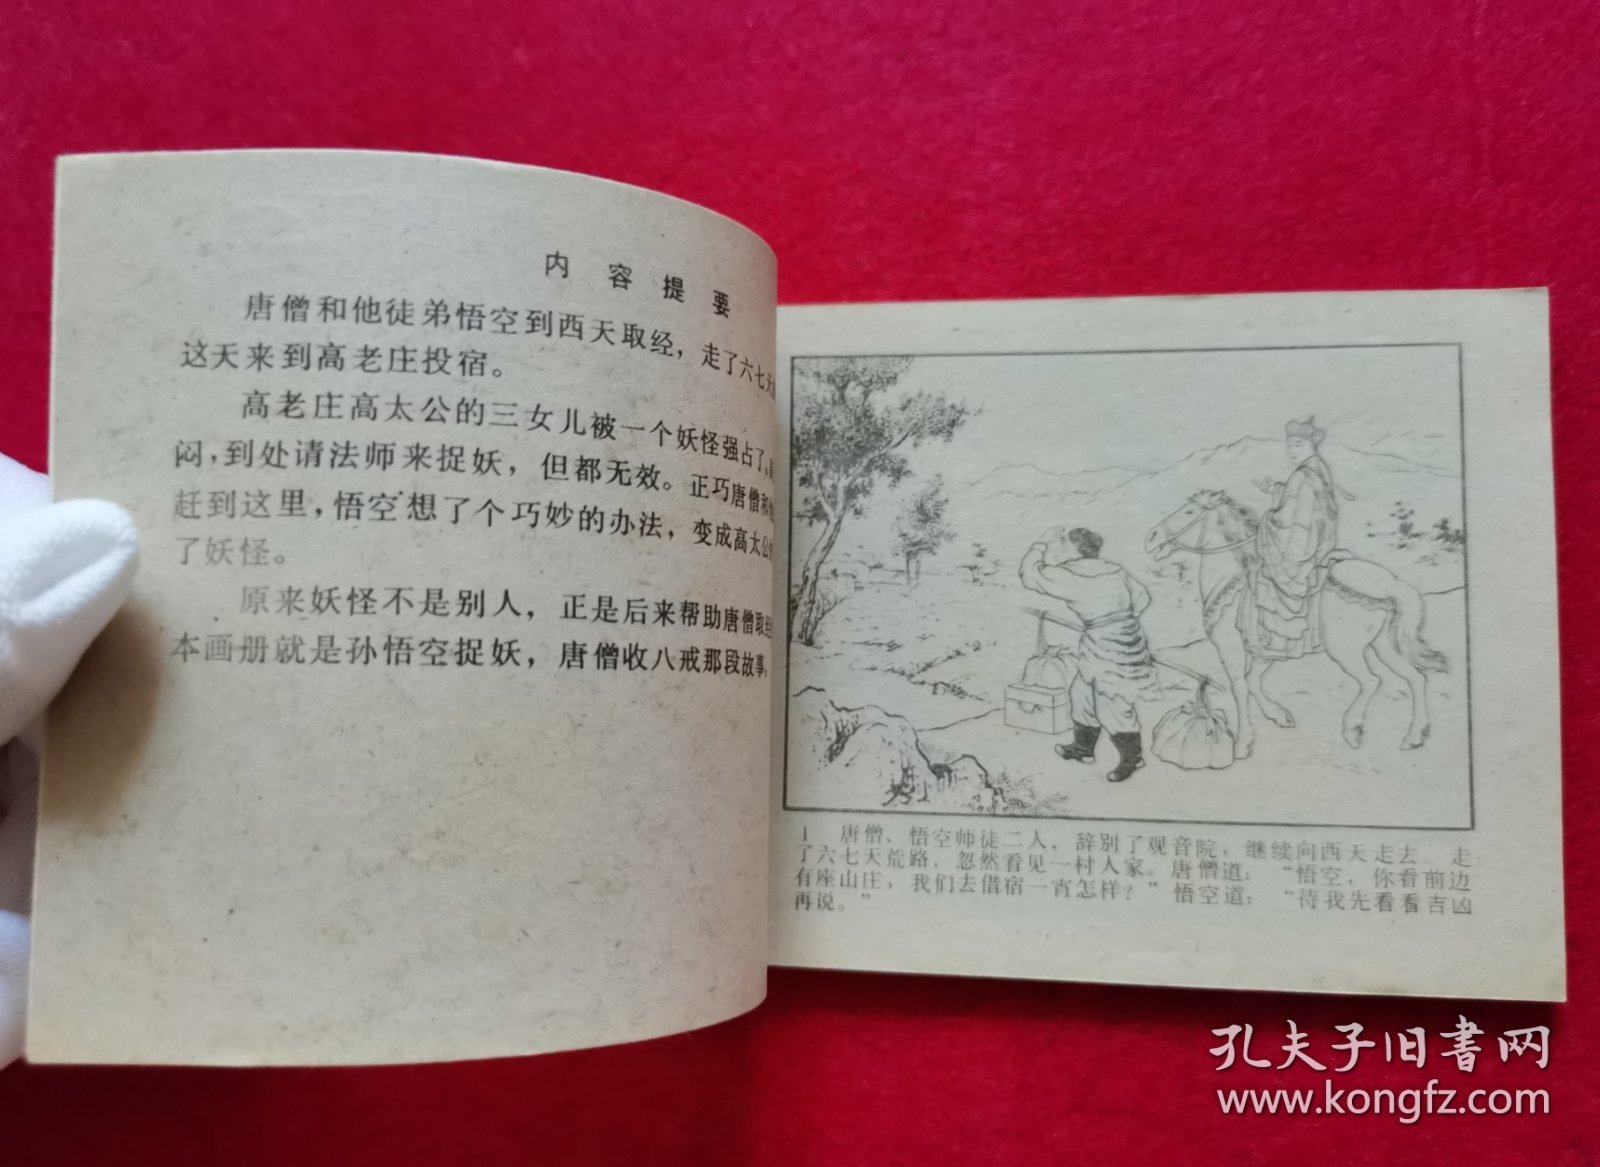 内容提要
唐僧和他徒弟悟空到西天取经，走了六七天
这天来到高老庄投宿。
高老庄高太公的三女儿被一个妖怪强占了。
闷，到处请法师来捉妖，但都无效。正巧唐僧和
赶到这里，悟空想了个巧妙的办法，变成高太公
了妖怪。
原来妖怪不是别人，正是后来帮助唐僧取经
本画册就是孙悟空捉妖，唐僧收八戒那段故事。
1 唐僧、悟空师徒二人，辞别了观音院，继续向西天走去。走
了六七天荒路，忽然看见一村人家。唐僧道：“悟空，你看前边
有座山庄，我们去借宿一宵怎样？”悟空道：“待我先看看吉凶
再说。”
孔夫子旧书网
www.kongfz.com